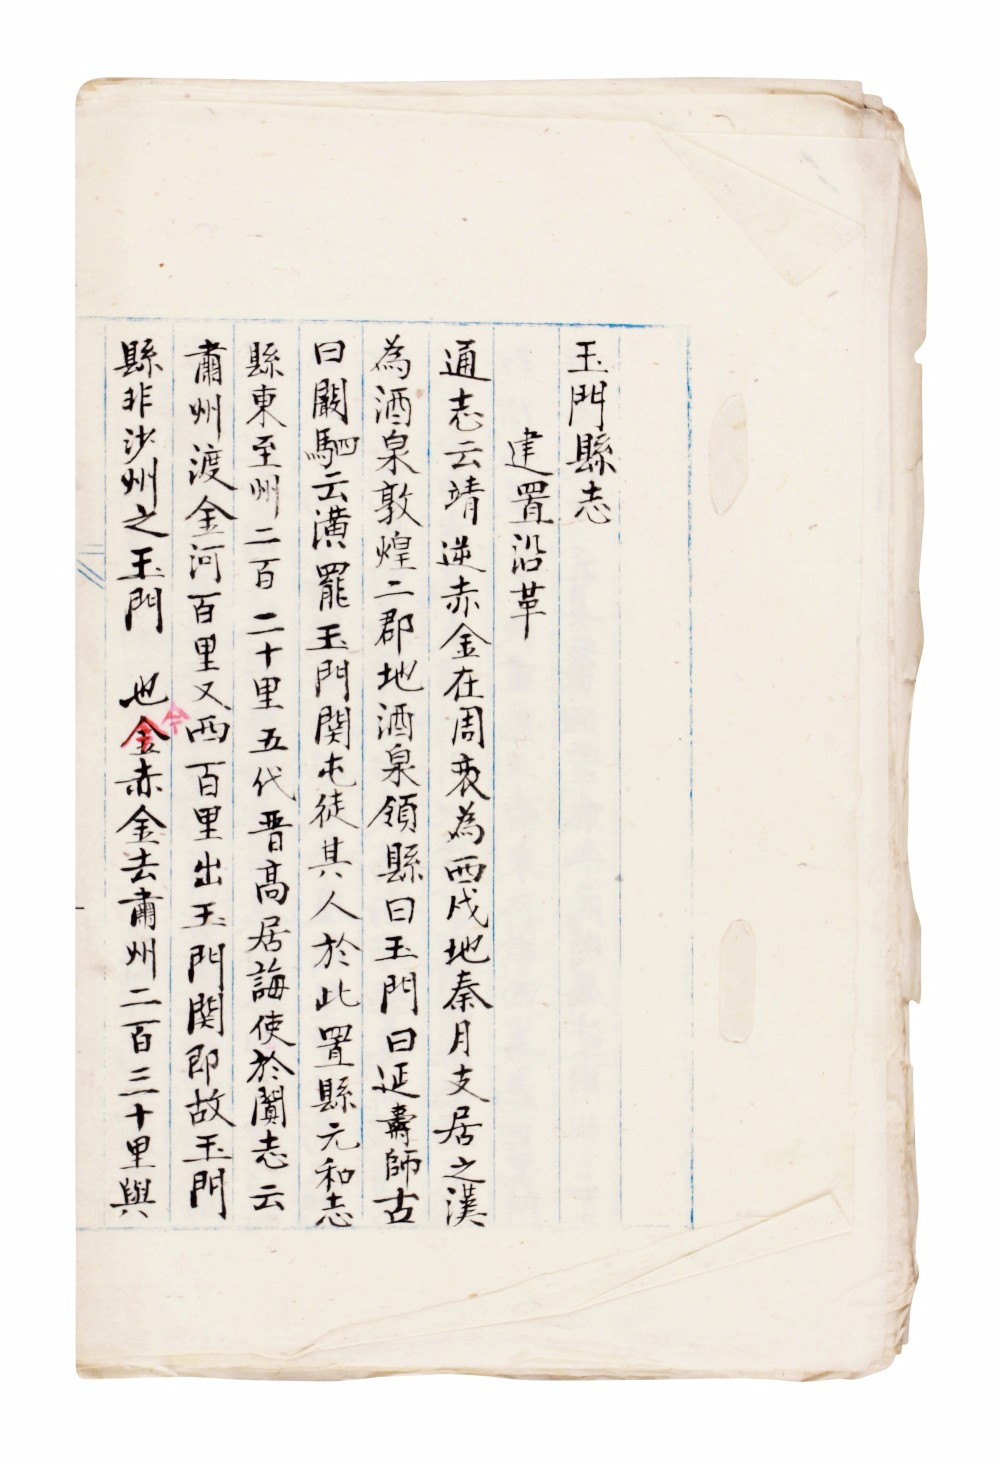 玉門縣志
建置沿革
通志云靖逆赤金在周衰為西戌地秦月支居之漢
為酒泉敦煌二郡地酒泉領縣曰玉門曰延壽師古
曰闞駰云漢罷玉門関屯徒其人於此置縣元和志
縣東至州二百二十里五代晋高居誨使於闐志云
肅州渡金河百里又西百里出玉門関即故玉門
縣非沙州之玉門 也金赤金去肅州二百三十里與
今